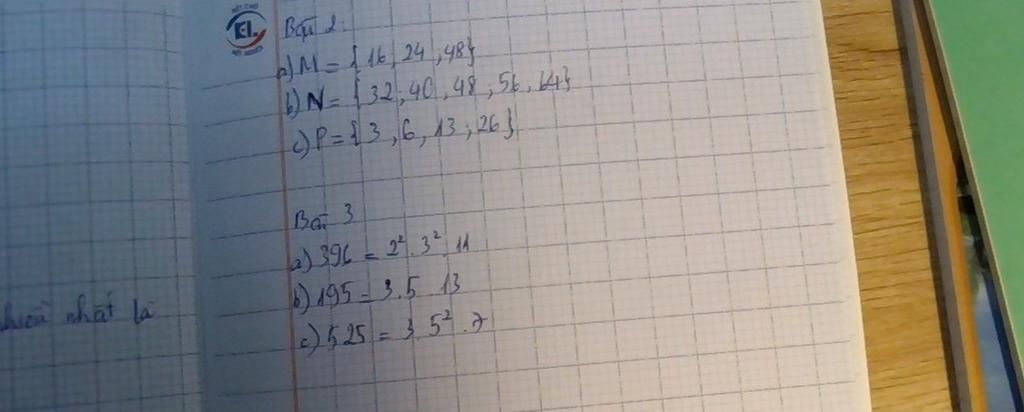 EI
Bài 2
a) M = {16, 24, 48}
b) N = {32; 40, 48; 56, 64}
c) P = {3, 6, 13; 26}
Bài 3
a) 396 = 2². 3². 11
b) 195 = 3.5 13
c) 525 = 3. 5². 7
nhất là